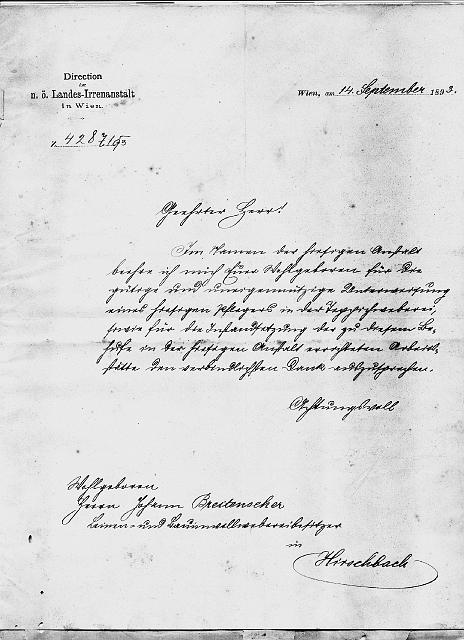 Direction
der
n. ö. Landes-Irrenanstalt
in Wien.
Wien, am 14. September 1893.
Z. 4287/93
Geehrter Herr!
Im Namen der hiesigen Anstalt
beehre ich mich Euer Wohlgeboren für die
gütige und uneigennützige Unterweisung
eines hiesigen Pflegers in der Teppichweberei,
sowie für die Instandsetzung der zu diesem Be-
hufe in der hiesigen Anstalt errichteten Arbeits-
stätte den verbindlichsten Dank auszusprechen.
Achtungsvoll
Wohlgeboren
Herrn Johann Breitenscher
Leinen- und Baumwollwebereibesitzer
in
Hirschbach